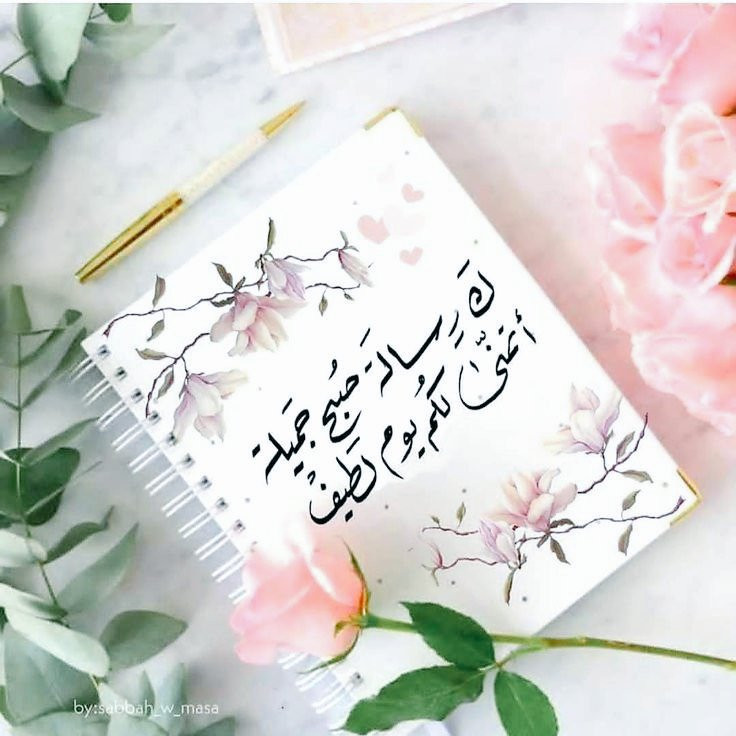 كَ رِسالة صُبح جَميلة
أتمنّىٰ لكم يوم لطيفْ
by:sabbah_w_masa